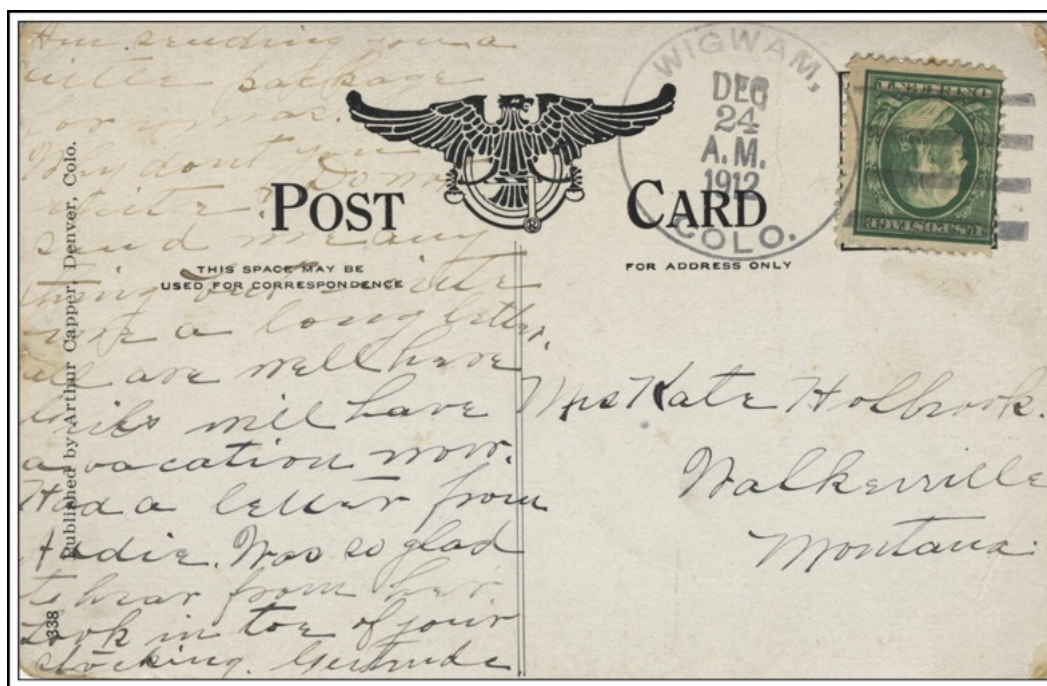 Am sending you a
little package
for xmas.
Why dont you
write? Dont
send me any
thing but write
me a long letter.
all are well here
will have
a vacation now.
Had a letter from
Addie. Was so glad
to hear from her.
Look in toe of your
stocking. Gertrude.
Published by Arthur Capper, Denver, Colo.
338
POST CARD
THIS SPACE MAY BE
USED FOR CORRESPONDENCE
FOR ADDRESS ONLY
WIGWAM,
DEC
24
A.M.
1912
COLO.
U.S. POSTAGE
ONE CENT
Mrs Kate Holbrook.
Walkerville
Montana.